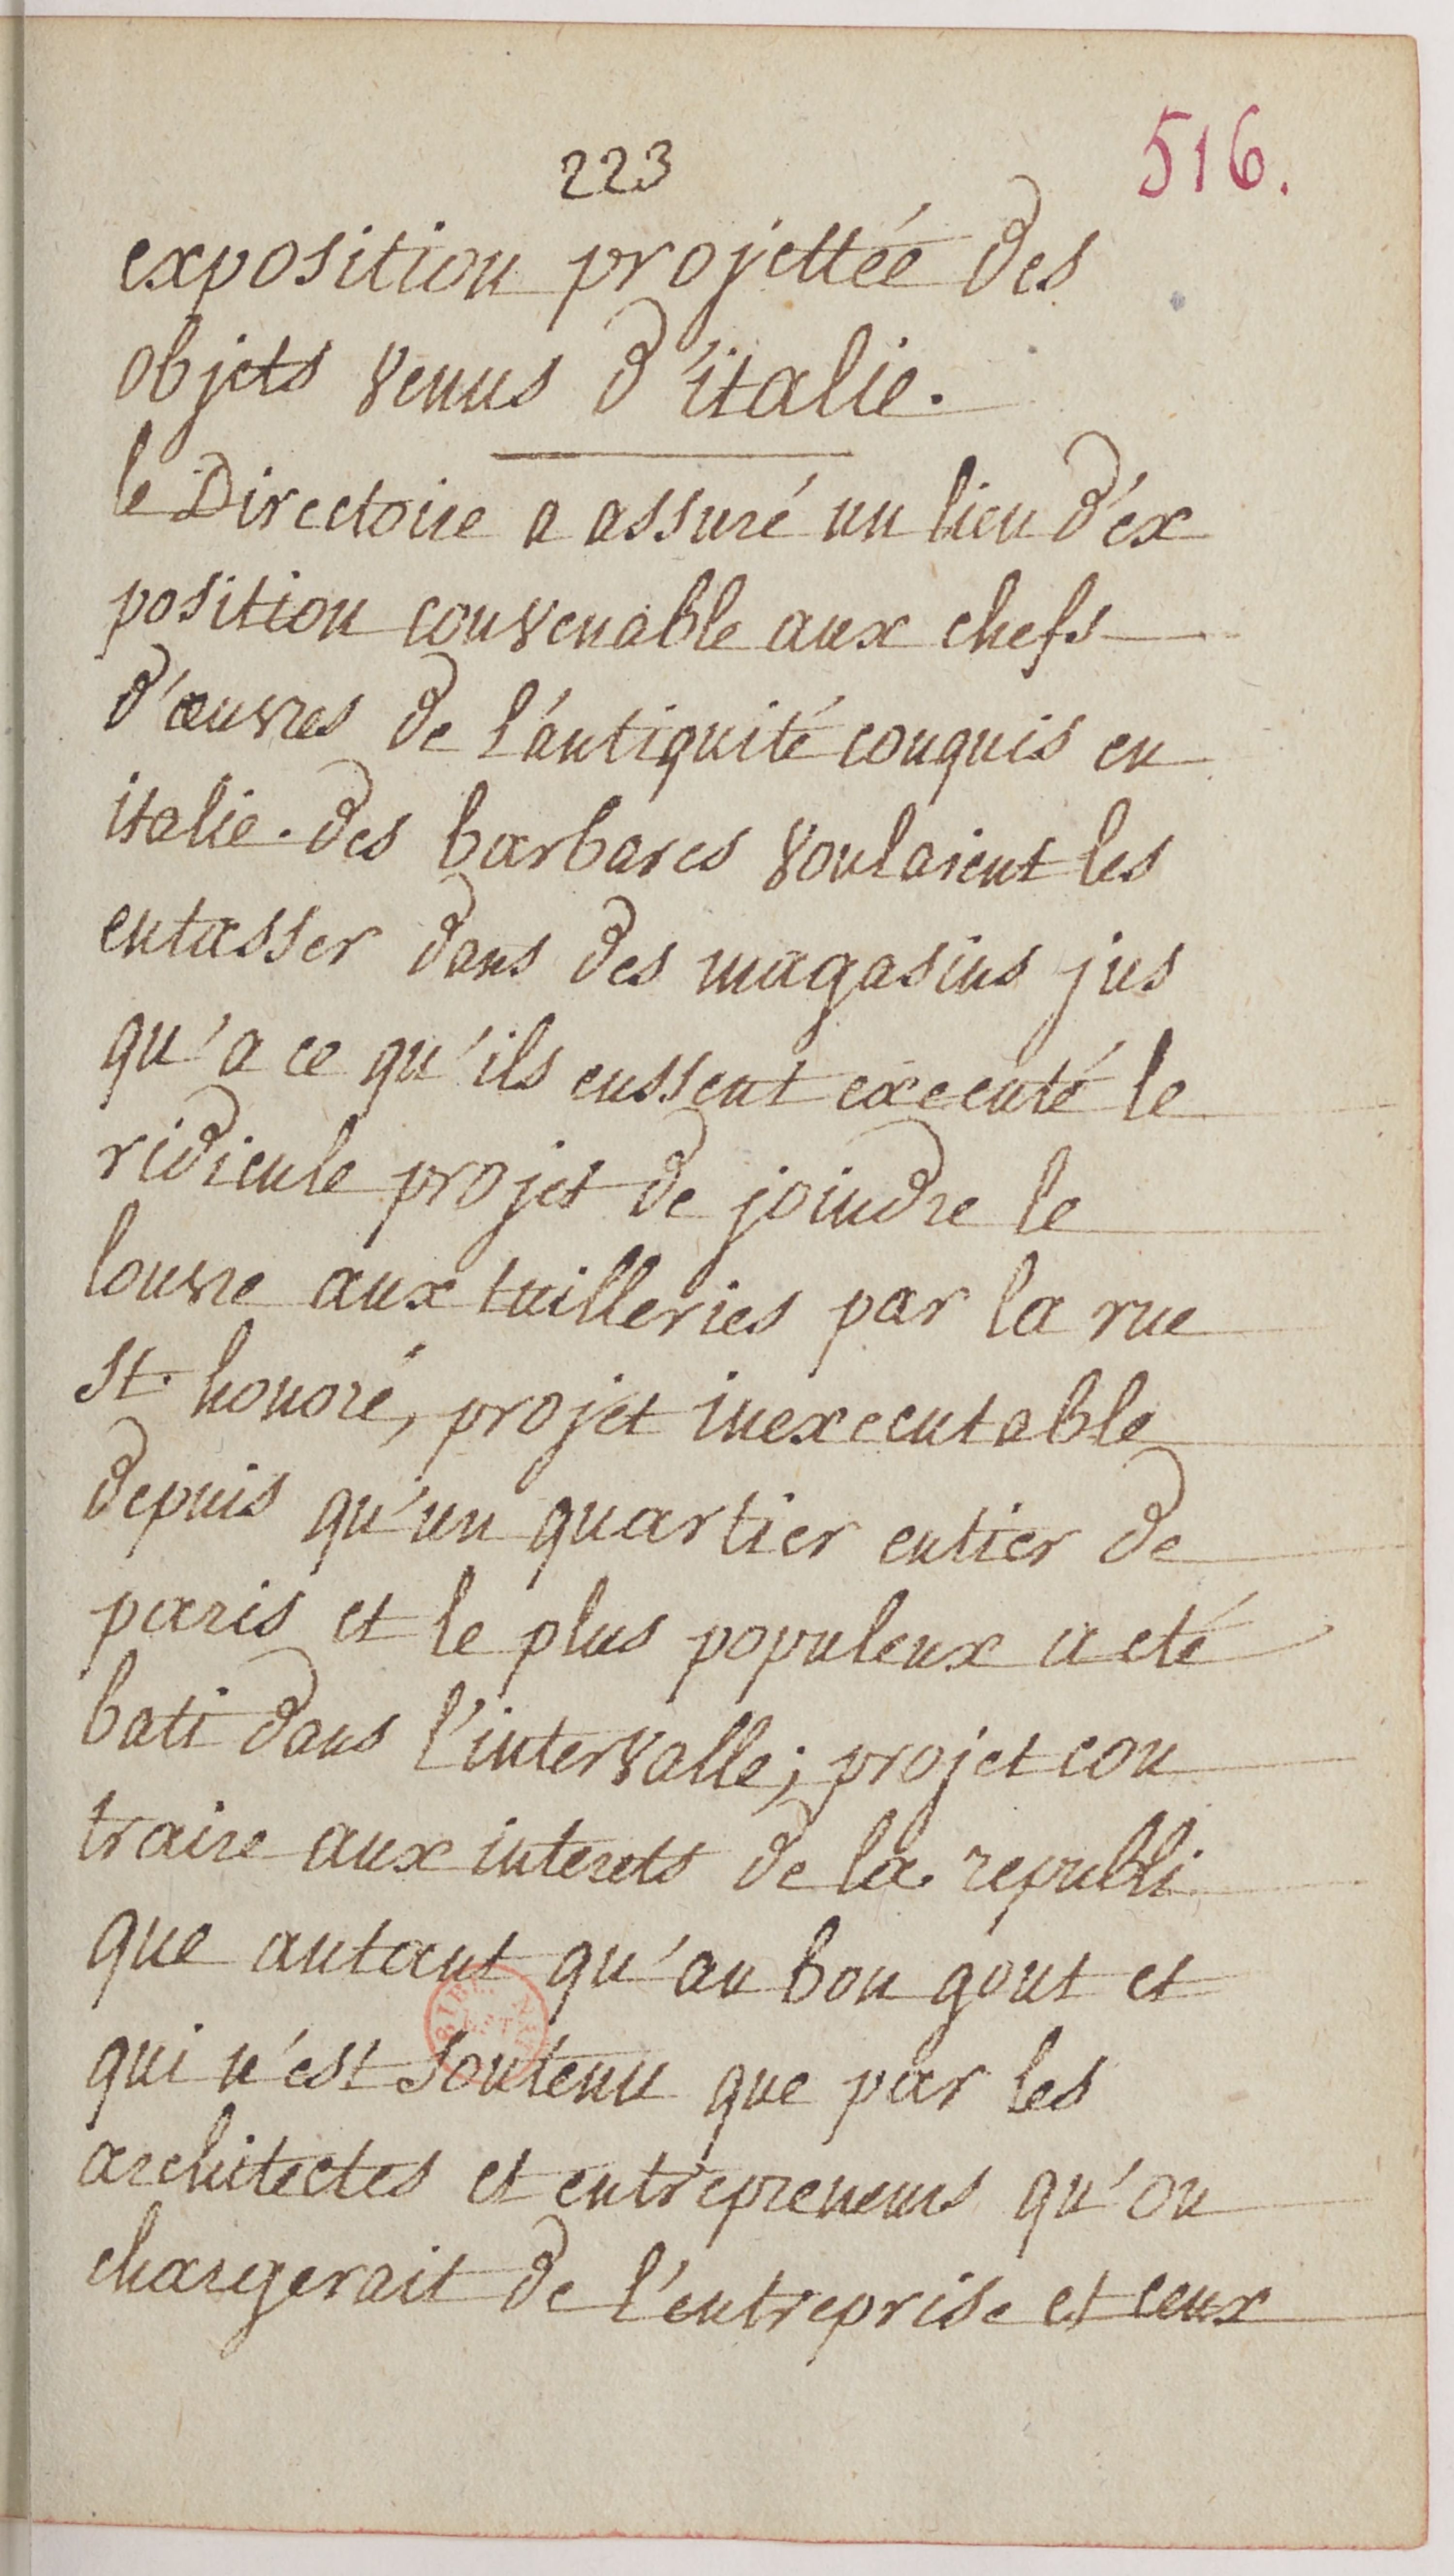 223
516.
exposition projettée des
objets venus d'italie.
le Directoire a assuré un lieu d'ex
position convenable aux chefs
d'œuvres de l'antiquité conquis en
italie. des barbares voulaient les
entasser dans des magasins jus
qu'a ce qu'ils eussent executé le
ridicule projet de joindre le
louvre aux tuilleries par la rue
st. honoré, projet inexecutable
depuis qu'un quartier entier de
paris et le plus populeux a eté
bati dans l'intervalle; projet con
traire aux interets de la republi
que autant qu'au bon gout et
qui n'est soutenu que par les
architectes et entrepreneurs qu'on
chargerait de l'entreprise et ceux